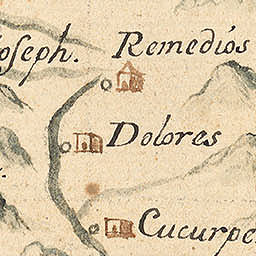 oseph. Remedios
Dolores
Cucurpe